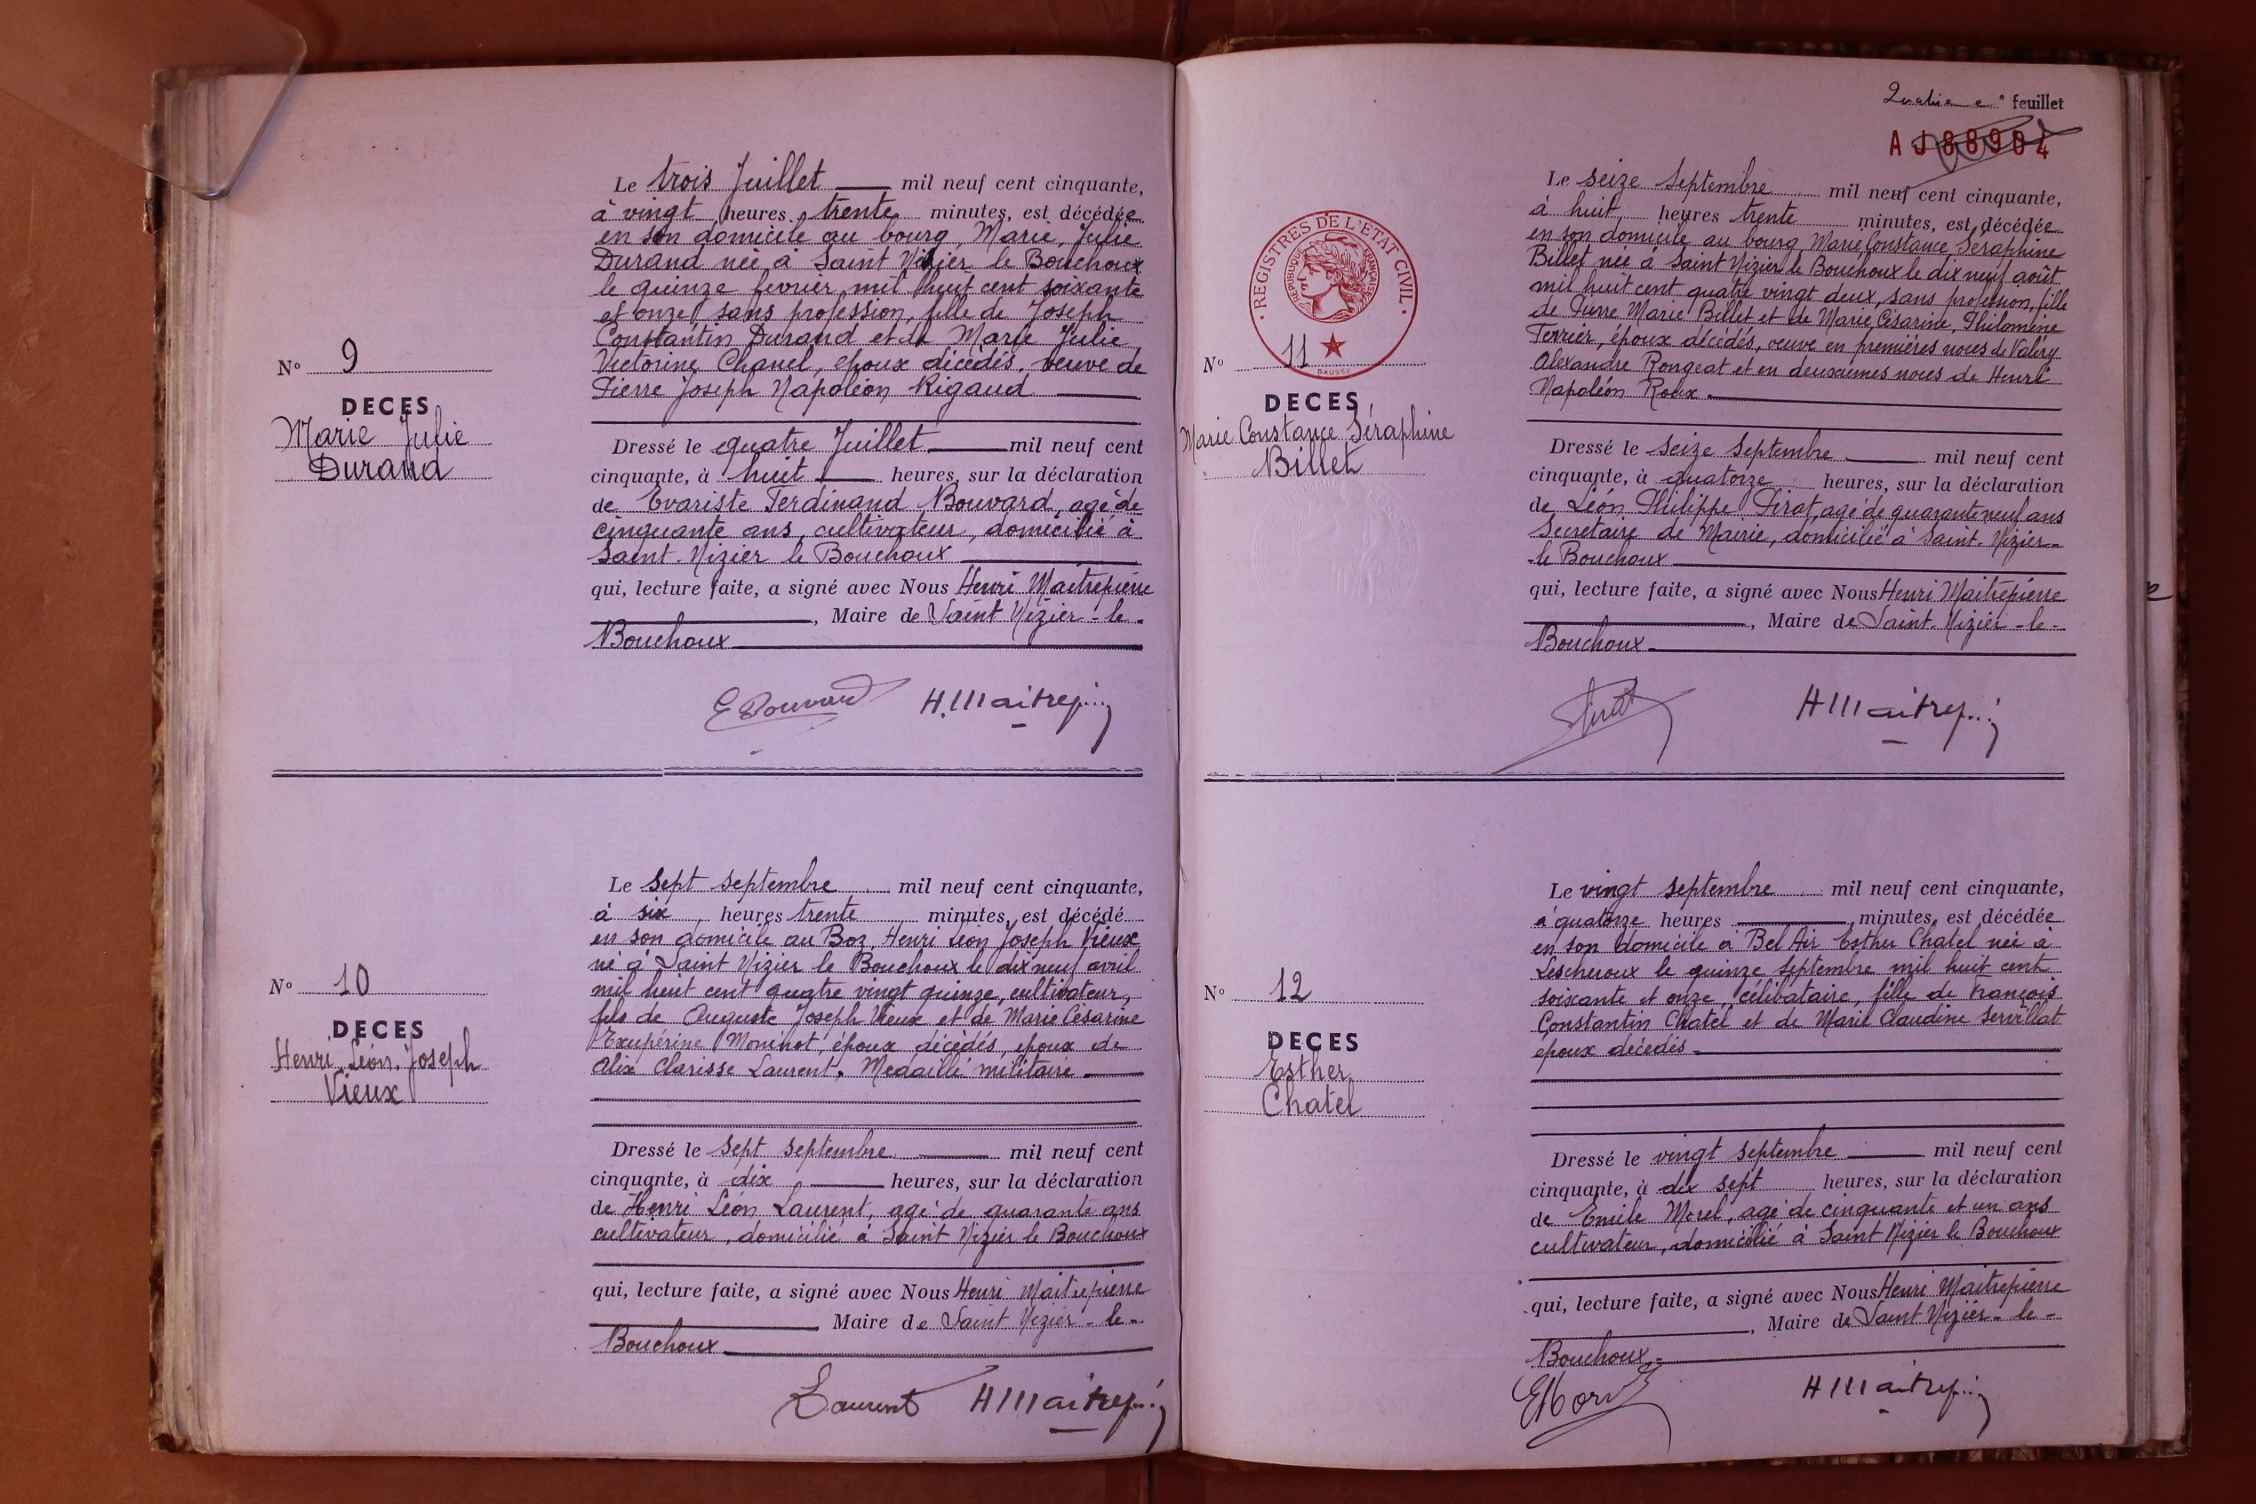 Le trois Juillet mil neuf cent cinquante,
à vingt heures trente minutes, est décédée
en son domicile au bourg, Marie, Julie
Durand née à Saint Nizier le Bouchoux
le quinze février mil huit cent soixante
et onze, sans profession, fille de Joseph
Constantin Durand et de Marie Julie
Victorine Chanel, époux décédés, veuve de
Pierre Joseph Napoléon Rigaud
N° 9
DECES
Marie Julie
Durand
Dressé le quatre Juillet mil neuf cent
cinquante, à huit heures, sur la déclaration
de Evariste Ferdinand Bouvard, agé de
cinquante ans, cultivateur, domicilié à
Saint-Nizier le Bouchoux
qui, lecture faite, a signé avec Nous Henri Maitrepierre
, Maire de Saint Nizier-le-
Bouchoux
E Bouvard H Maitrepi
Le sept septembre mil neuf cent cinquante,
à six heures trente minutes, est décédé
en son domicile au Boz, Henri Léon Joseph Vieux
né à Saint Nizier le Bouchoux le dix neuf avril
mil huit cent quatre vingt quinze, cultivateur,
fils de Auguste Joseph Vieux et de Marie Césarine
Exupérine Moninot, époux décédés, époux de
Alix Clarisse Laurent. Médaillé militaire
N° 10
DECES
Henri Léon Joseph
Vieux
Dressé le sept septembre mil neuf cent
cinquante, à dix heures, sur la déclaration
de Henri Léon Laurent, agé de quarante ans
cultivateur, domicilié à Saint Nizier le Bouchoux
qui, lecture faite, a signé avec Nous Henri Maitrepierre
Maire de Saint Nizier-le-
Bouchoux
Laurent H Maitrepi
Quatrieme feuillet
AJ88904
REGISTRES DE L'ETAT CIVIL
REPUBLIQUE FRANÇAISE
Le seize septembre mil neuf cent cinquante,
à huit heures trente minutes, est décédée
en son domicile au bourg Marie Constance Séraphine
Billet née à Saint Nizier le Bouchoux le dix neuf août
mil huit cent quatre vingt deux, sans profession, fille
de Pierre Marie Billet et de Marie, Césarine, Philomène
Terrier, époux décédés, veuve en premières noces de Valéry
Alexandre Rongeat et en deuxièmes noces de Henri
Napoléon Roux.
N° 11
DECES
Marie Constance Séraphine
Billet
Dressé le seize septembre mil neuf cent
cinquante, à quatorze heures, sur la déclaration
de Léon Philippe Pirat, agé de quarante neuf ans
Secrétaire de Mairie, domicilié à Saint-Nizier-
le Bouchoux
qui, lecture faite, a signé avec Nous Henri Maitrepierre
, Maire de Saint-Nizier-le-
Bouchoux
Pirat H Maitrepi
Le vingt septembre mil neuf cent cinquante,
a quatorze heures minutes, est décédée
en son domicile à Bel Air Esther Chatel née à
Lescheroux le quinze septembre mil huit cent
soixante et onze, célibataire, fille de François
Constantin Chatel et de Marie Claudine Servillat
époux décédés
N° 12
DECES
Esther
Chatel
Dressé le vingt septembre mil neuf cent
cinquante, à dix sept heures, sur la déclaration
de Emile Morel, agé de cinquante et un ans
cultivateur, domicilié à Saint Nizier le Bouchoux
qui, lecture faite, a signé avec Nous Henri Maitrepierre
, Maire de Saint Nizier-le-
Bouchoux
E Morel H Maitrepi